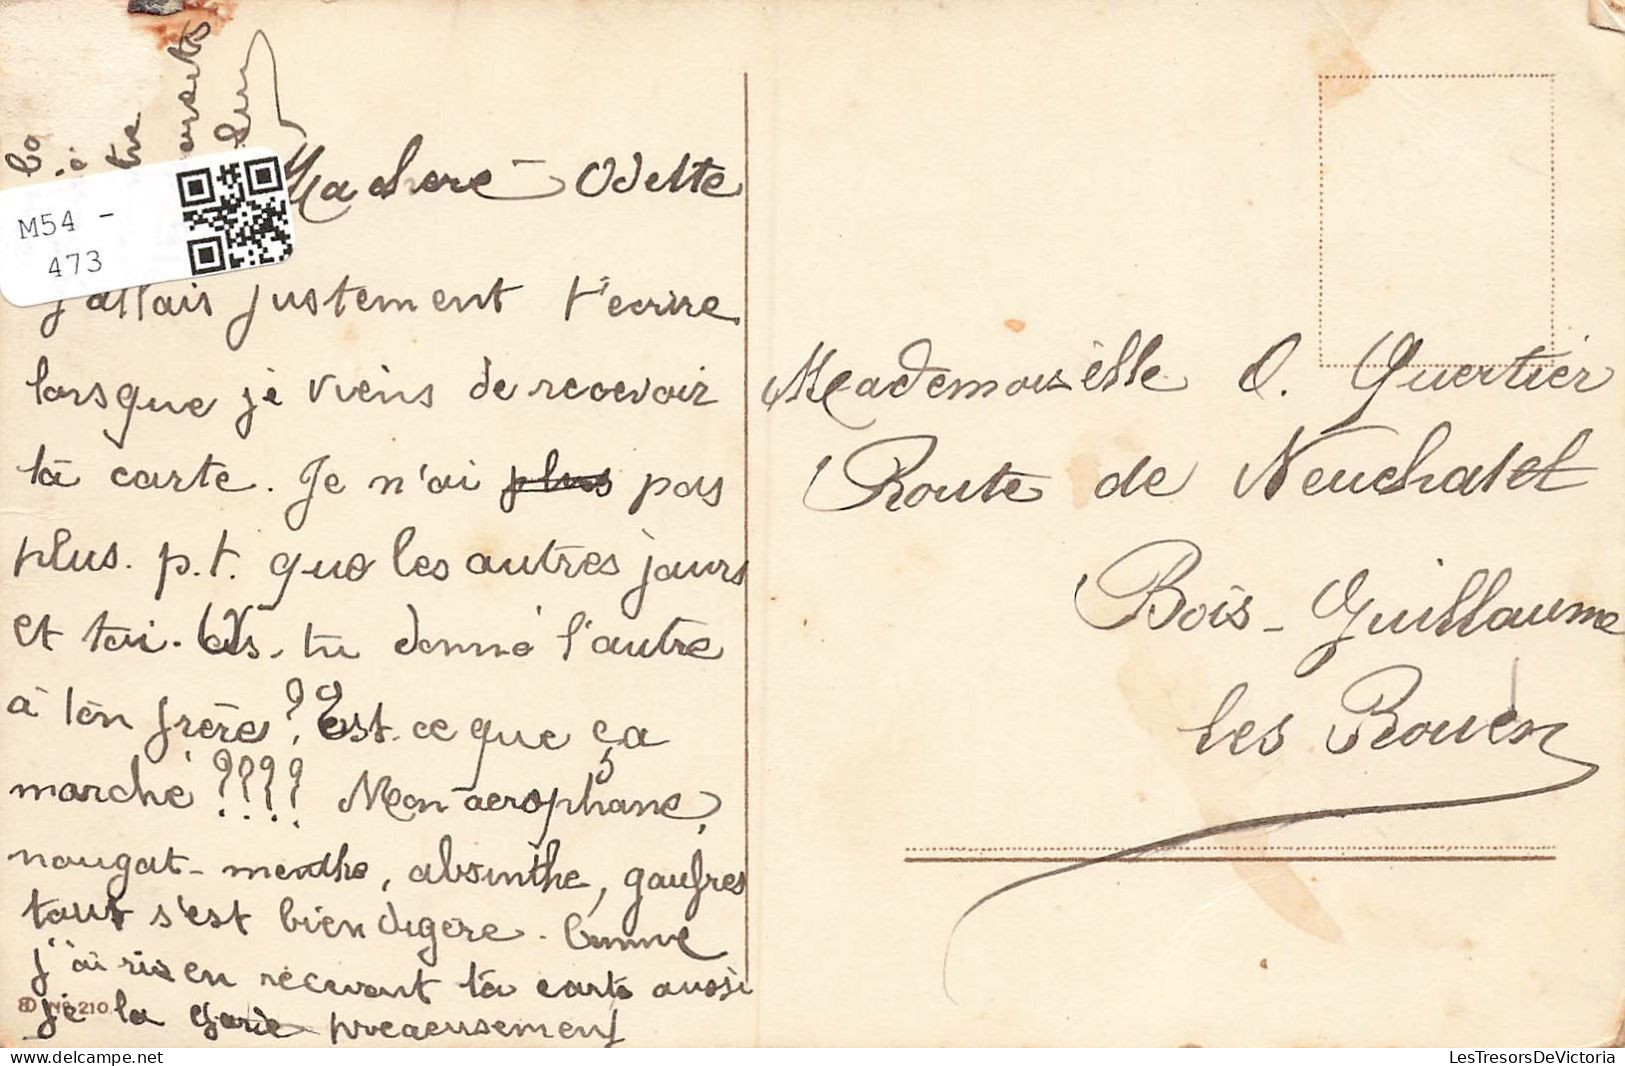 Ma chere Odette
j'allais justement t'ecrire
lorsque je viens de recevoir
ta carte. Je n'ai plus pas
plus. p.t. que les autres jours
et toi. As-tu donné l'autre
à ton frère? Est-ce que ça
marche???? Mon aerophane,
nougat-menthe, absinthe, gaufres
tout s'est bien digere. Comme
j'ai ris en recevant ta carte aussi
je la garde precieusement
Mademoiselle O. Quertier
Route de Neuchatel
Bois-Guillaume
les Rouen
M54 -
473
210
LesTresorsDeVictoria